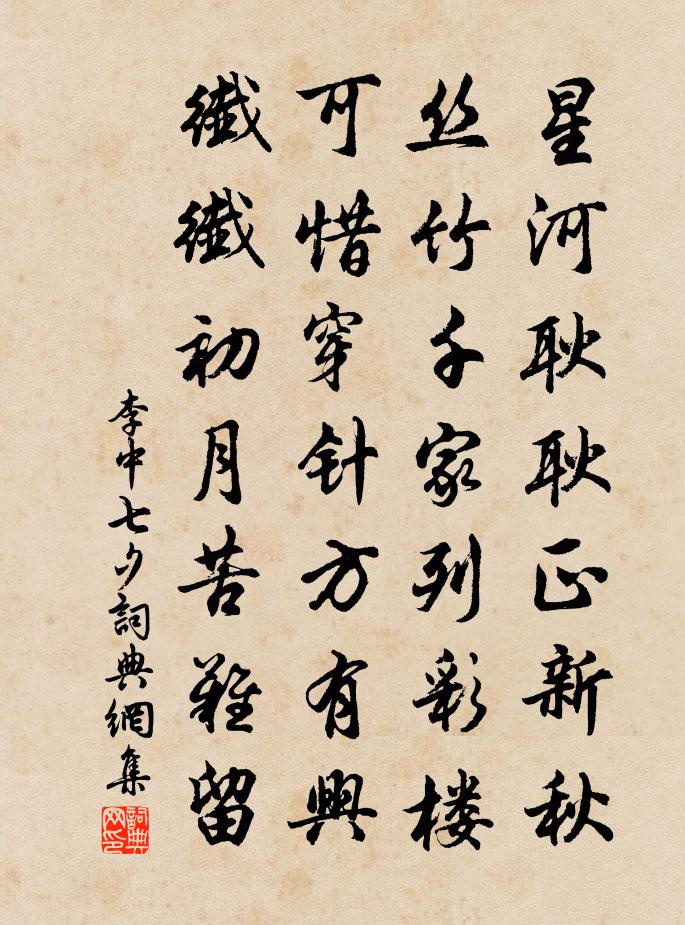 星河耿耿正新秋
丝竹千家列彩楼
可惜穿针方有興
纖纖初月苦難留
李中七夕詞典網集
詞典网印